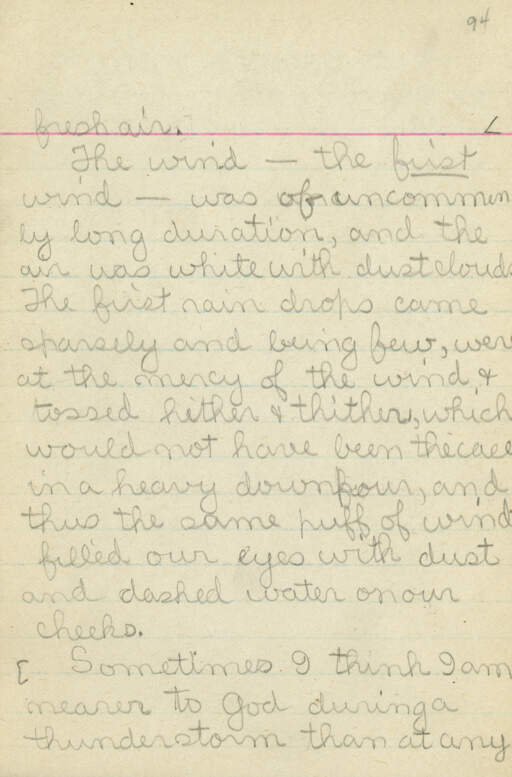 94
fresh air.
The wind — the first
wind — was of uncommon
ly long duration, and the
air was white with dust clouds
The first rain drops came
sparsely and being few, were
at the mercy of the wind &
tossed hither & thither, which
would not have been the case
in a heavy downpour, and
thus the same puff of wind
filled our eyes with dust
and dashed water on our
cheeks.
[ Sometimes I think I am
nearer to God during a
thunderstorm than at any